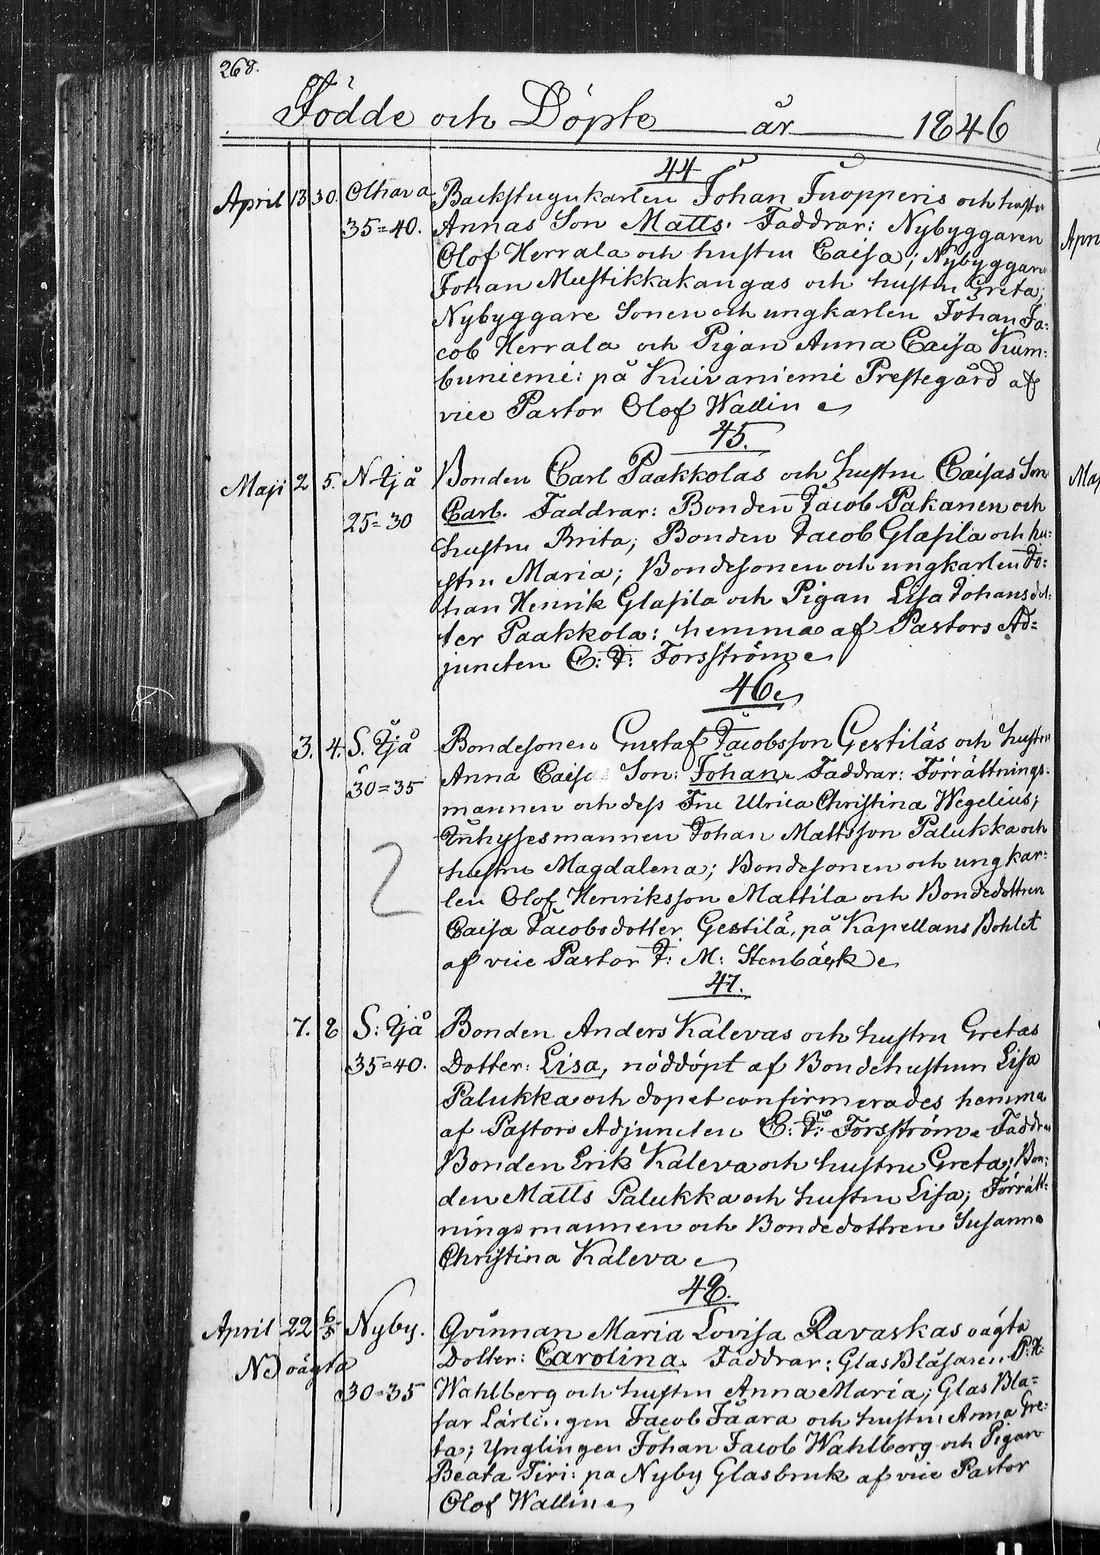 268.
Födde och Döpte år 1846
44
April 13 30. Olhava Backstugukarlen Johan Juopperis och hustru
35=40. Annas Son Matts. Faddrar: Nybyggaren
Olof Herrala och hustru Caisa; Nybyggare
Johan Mustikkakangas och hustru Greta;
Nybyggare Sonen och ungkarlen Johan Ja=
cob Herrala och Pigan Anna Caisa Kum=
buniemi: på Kuivaniemi Prestegård af
vice Pastor Olof Wallin
45.
Maji 2 5. N. Ijå Bonden Carl Paakkolas och hustru Caisas Son
25=30 Carl. Faddrar: Bonden Jacob Pakanen och
hustru Brita; Bonden Jacob Glasila och hu=
stru Maria; Bondesonen och ungkarlen Jo=
han Henrik Glasila och Pigan Lisa Johansdot=
ter Paakkola: hemma af Pastors Ad=
juncten C: J: Forsström
46
3. 4. S. Ijå Bondesonen Gustaf Jacobsson Gestiläs och hustru
30=35 Anna Caisas Son: Johan. Faddrar: Förrättnings=
mannen och dess Fru Ulrica Christina Wegelius;
Inhysesmannen Johan Mattsson Palukka och
hustru Magdalena; Bondesonen och ungkar=
2
len Olof Henriksson Mattila och Bondedottren
Caisa Jacobsdotter Gestilä, på Kapellans Bohlet
af vice Pastor J: M: Stenbäck
47.
7. 8 S: Ijå Bonden Anders Kalevas och hustru Gretas
35=40. Dotter: Lisa, nöddöpt af Bondehustrun Lisa
Palukka och dopet confirmerades hemma
af Pastors Adjuncten C: J: Forsström. Faddrar
Bonden Erik Kaleva och hustru Greta; Bon=
den Matts Palukka och hustru Lisa; Förrätt=
ningsmannen och Bondedottren Susanna
Christina Kaleva
48.
April 22 6/5 Nyby. Qvinnan Maria Lovisa Ravaskas oägta
N.B oägta Dotter: Carolina. Faddrar: GlasBlåsaren P:
30=35 Wahlberg och hustru Anna Maria; Glas Blå=
sar Lärlingen Jacob Jäara och hustru Anna Gre=
ta; Ynglingen Johan Jacob Wahlberg och Pigan
Beata Tiri: på Nyby Glasbruk af vice Pastor
Olof Wallin